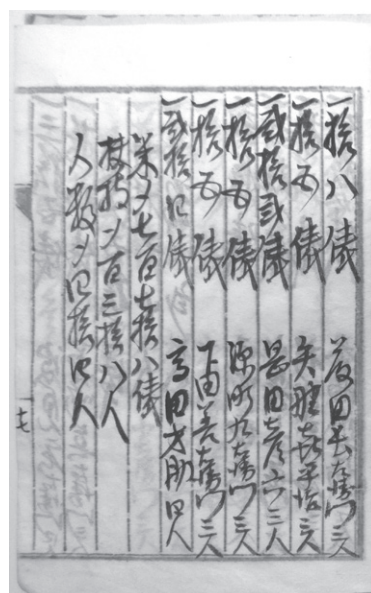 一拾八俵 藤田長左衛門 三人
一拾五俵 矢野喜平治 三人
一弐拾弐俵 黒田七彦六 三人
一拾五俵 源町九左衛門 三人
一拾五俵 下田善左衛門 三人
一弐拾四俵 高田才助 四人
〆七百七拾八俵
扶持〆百三拾八人
人数〆四拾四人
十七